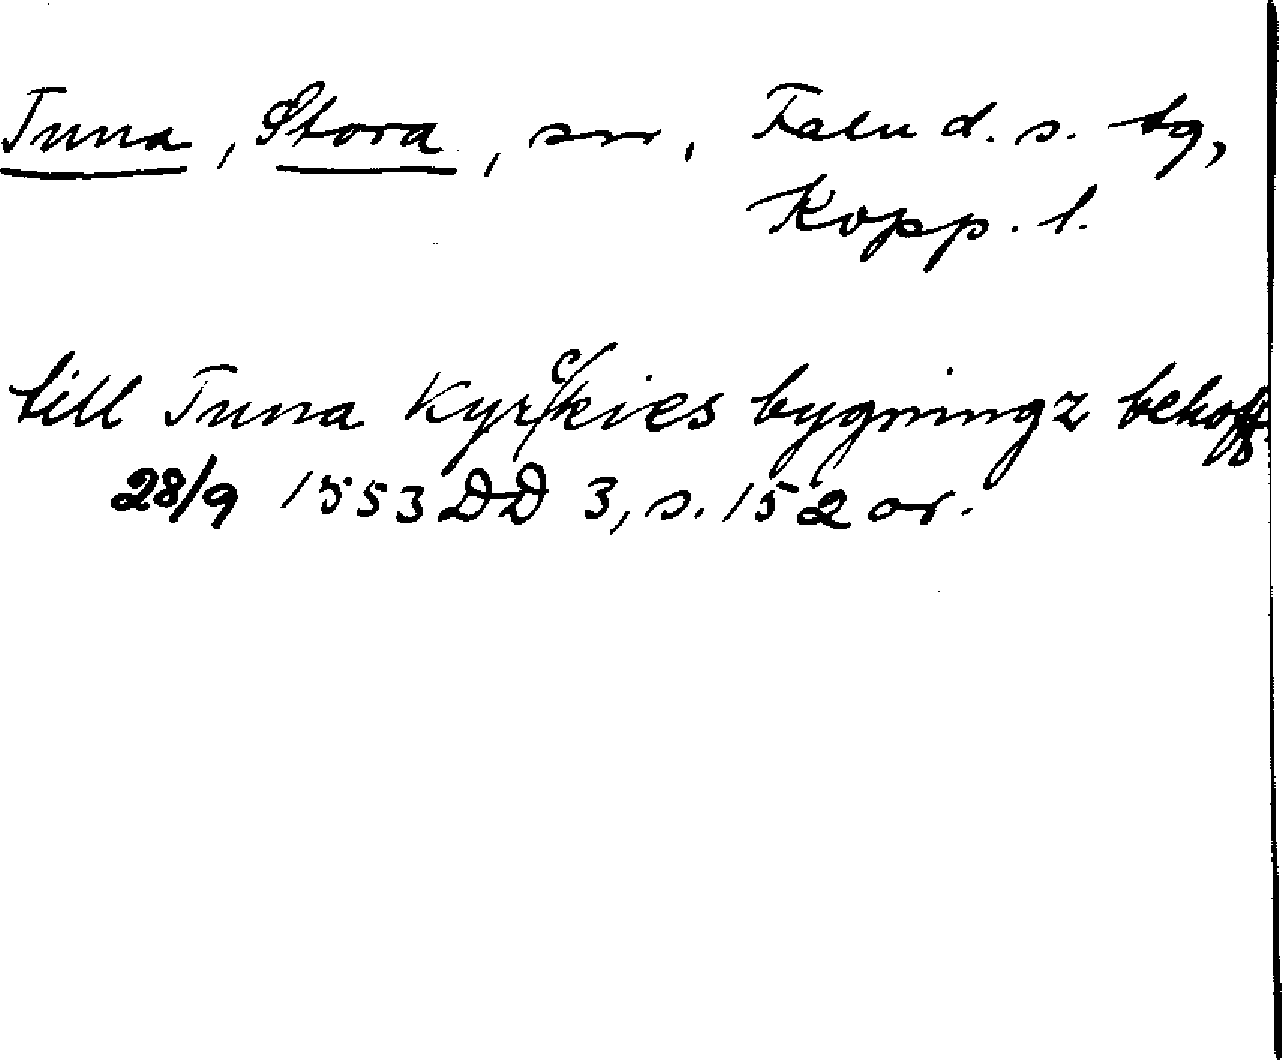 Tuna, Stora, sn, Falu d. s. tg,
Kopp. l.
till Tuna Kyrckies bygningz behoff
28/9 1553 DD 3, s. 152 or.